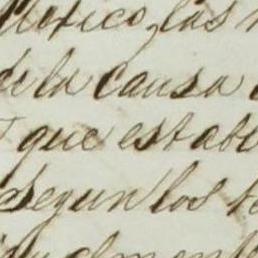 Mexico, las
de la causa
que estab
segun los